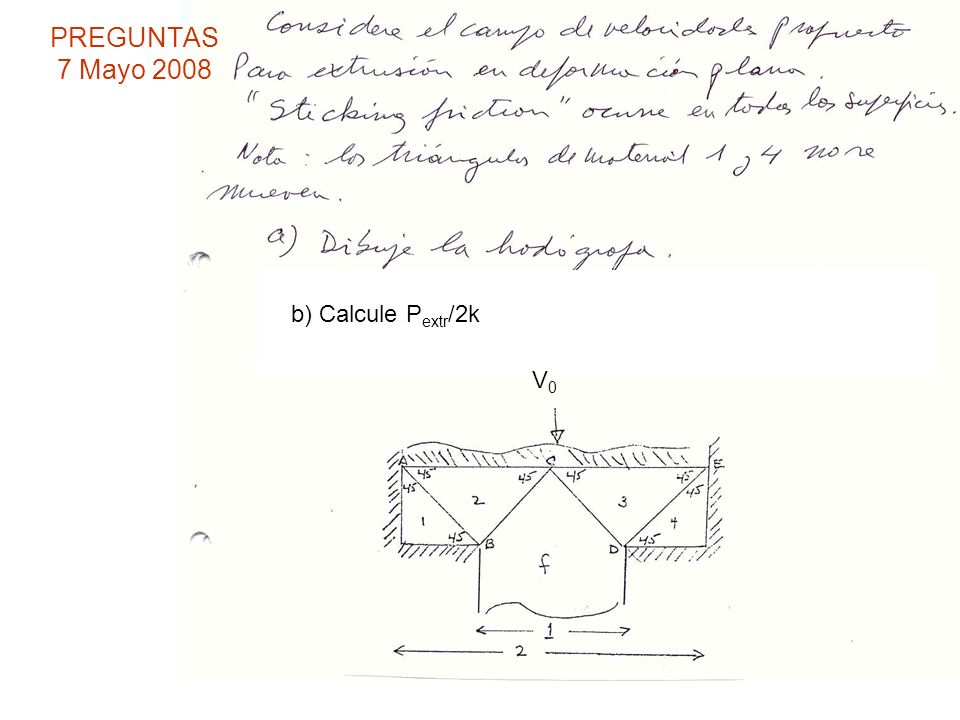 PREGUNTAS
7 Mayo 2008
Considere el campo de velocidades propuesto
Para extrusión en deformación plana.
"Sticking friction" ocurre en todas las superficies.
Nota: los triángulos de material 1 y 4 no se
mueven.
a) Dibuje la hodógrafa.
b) Calcule Pextr/2k
V0
A C E
45 45 45 45
45 2 3 45
1 4
45 B D 45
f
1
2